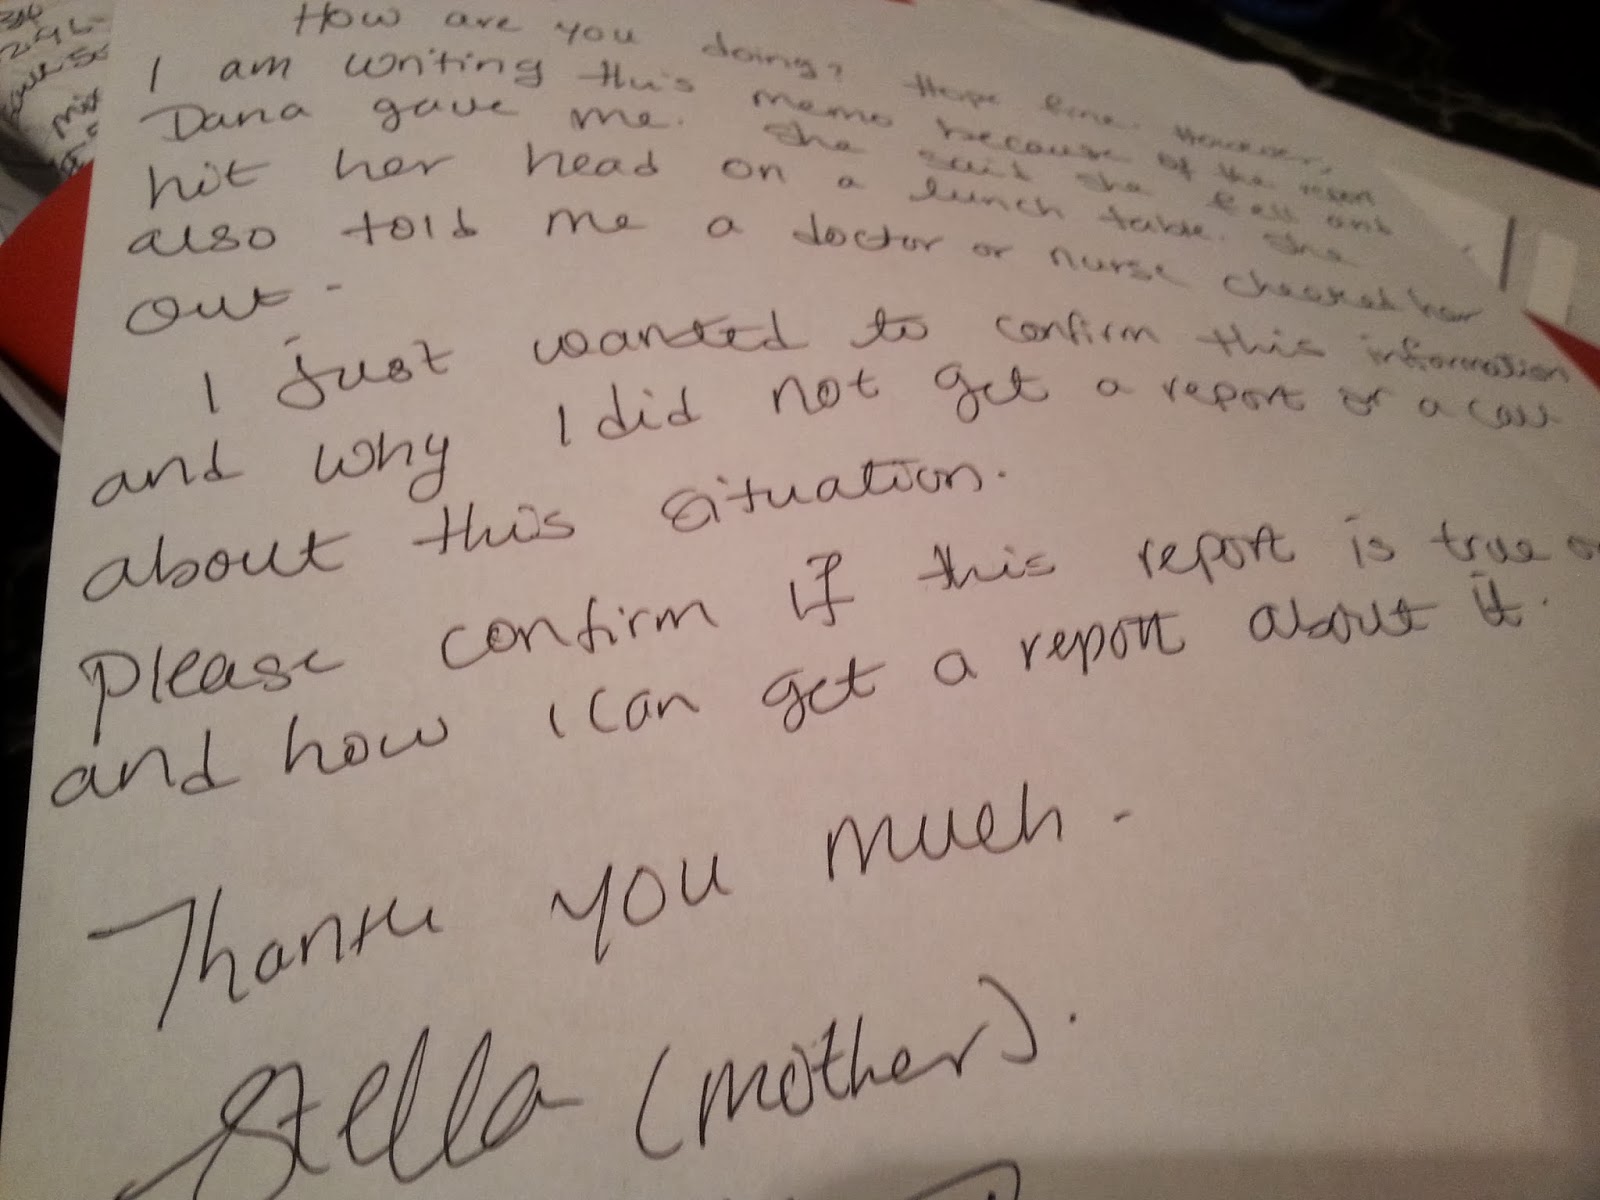 How are you doing? Hope fine. However,
I am writing this memo because of the reason
Dana gave me. She said she fell and
hit her head on a lunch table. She
also told me a doctor or nurse checked her
out.
I just wanted to confirm this information
and why I did not get a report or a call
about this situation.
Please confirm if this report is true or
and how I can get a report about it.
Thank you much.
Stella (mother).